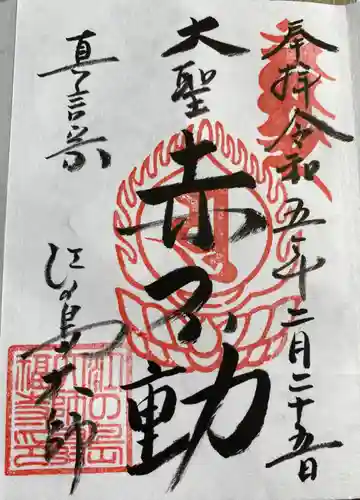 奉拝 令和五年二月二十五日
大聖
赤不動
真言宗
江の島大師